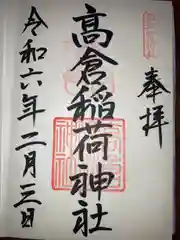 奉拝
高倉稲荷神社
令和六年二月三日